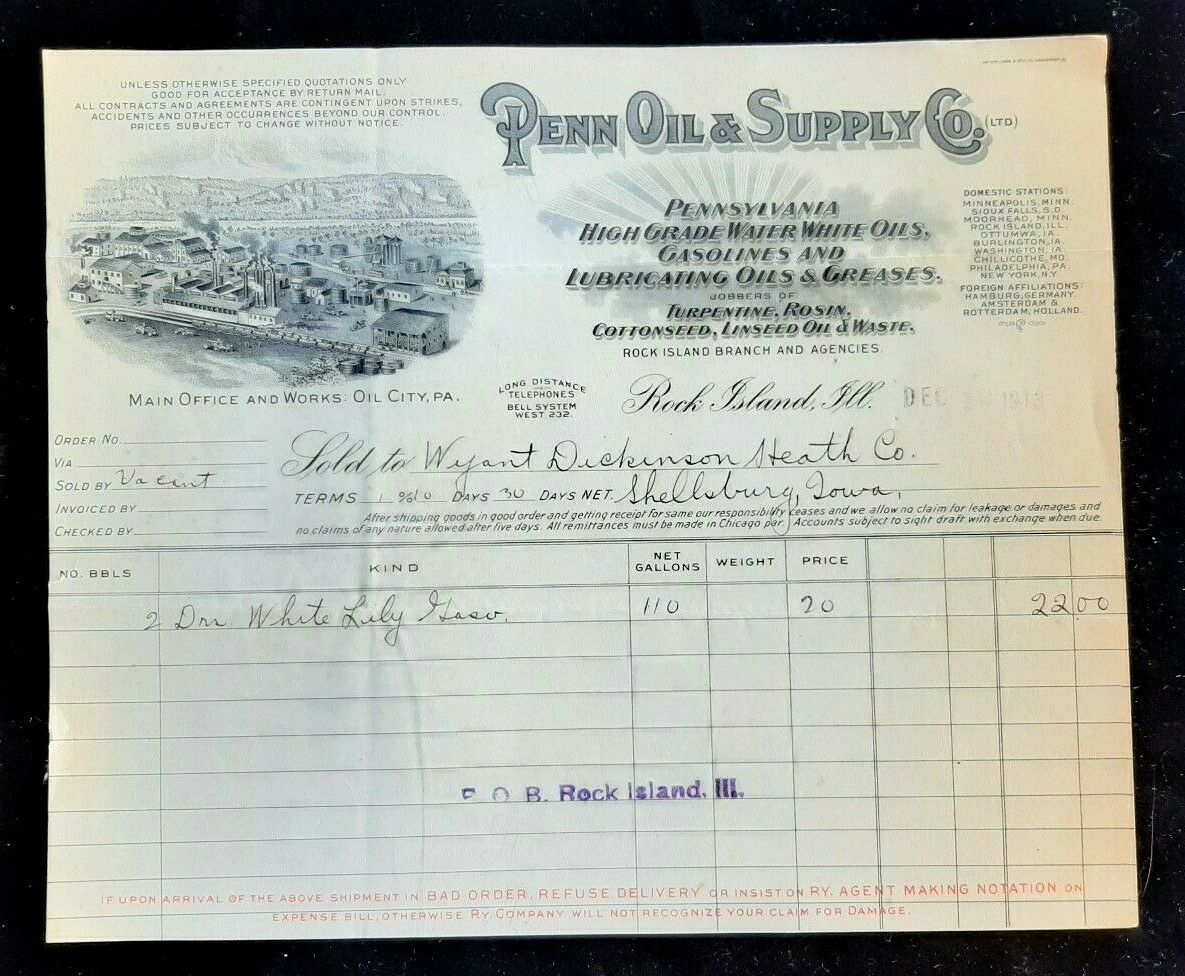 UNLESS OTHERWISE SPECIFIED QUOTATIONS ONLY
GOOD FOR ACCEPTANCE BY RETURN MAIL.
ALL CONTRACTS AND AGREEMENTS ARE CONTINGENT UPON STRIKES,
ACCIDENTS AND OTHER OCCURRENCES BEYOND OUR CONTROL.
PRICES SUBJECT TO CHANGE WITHOUT NOTICE.
PENN OIL & SUPPLY CO. (LTD)
PENNSYLVANIA
HIGH GRADE WATER WHITE OILS,
GASOLINES AND
LUBRICATING OILS & GREASES.
JOBBERS OF
TURPENTINE, ROSIN,
COTTONSEED, LINSEED OIL & WASTE.
ROCK ISLAND BRANCH AND AGENCIES.
DOMESTIC STATIONS:
MINNEAPOLIS, MINN.
SIOUX FALLS, S.D.
MOORHEAD, MINN.
ROCK ISLAND, ILL.
OTTUMWA, IA.
BURLINGTON, IA.
WASHINGTON, IA.
CHILLICOTHE, MO.
PHILADELPHIA, PA.
NEW YORK, N.Y.
FOREIGN AFFILIATIONS:
HAMBURG, GERMANY.
AMSTERDAM &
ROTTERDAM, HOLLAND.
MAIN OFFICE AND WORKS: OIL CITY, PA.
LONG DISTANCE
TELEPHONES
BELL SYSTEM
WEST 232.
Rock Island, Ill. DEC
ORDER NO.
VIA
SOLD BY Vacant
INVOICED BY
CHECKED BY
Sold to Wyant Dickinson Heath Co.
TERMS 1 % 10 DAYS 30 DAYS NET. Shellsburg, Iowa,
After shipping goods in good order and getting receipt for same our responsibility ceases and we allow no claim for leakage or damages and
no claims of any nature allowed after five days. All remittances must be made in Chicago par. Accounts subject to sight draft with exchange when due.
NO. BBLS KIND NET GALLONS WEIGHT PRICE
2 Drr. White Lily Gaso. 110 20 22.00
F O B. Rock Island. Ill.
IF UPON ARRIVAL OF THE ABOVE SHIPMENT IN BAD ORDER, REFUSE DELIVERY OR INSIST ON RY. AGENT MAKING NOTATION ON
EXPENSE BILL, OTHERWISE RY. COMPANY WILL NOT RECOGNIZE YOUR CLAIM FOR DAMAGE.